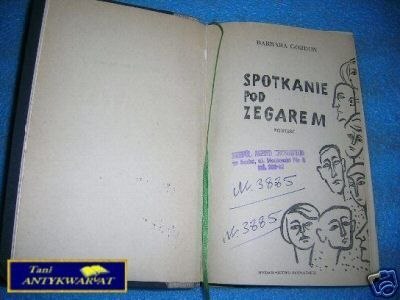 BARBARA GORDON
SPOTKANIE
POD
ZEGAREM
POWIEŚĆ
Nr. 3885
Nr. 3885
WYDAWNICTWO POZNAŃSKIE
Tani
ANTYKWARYAT